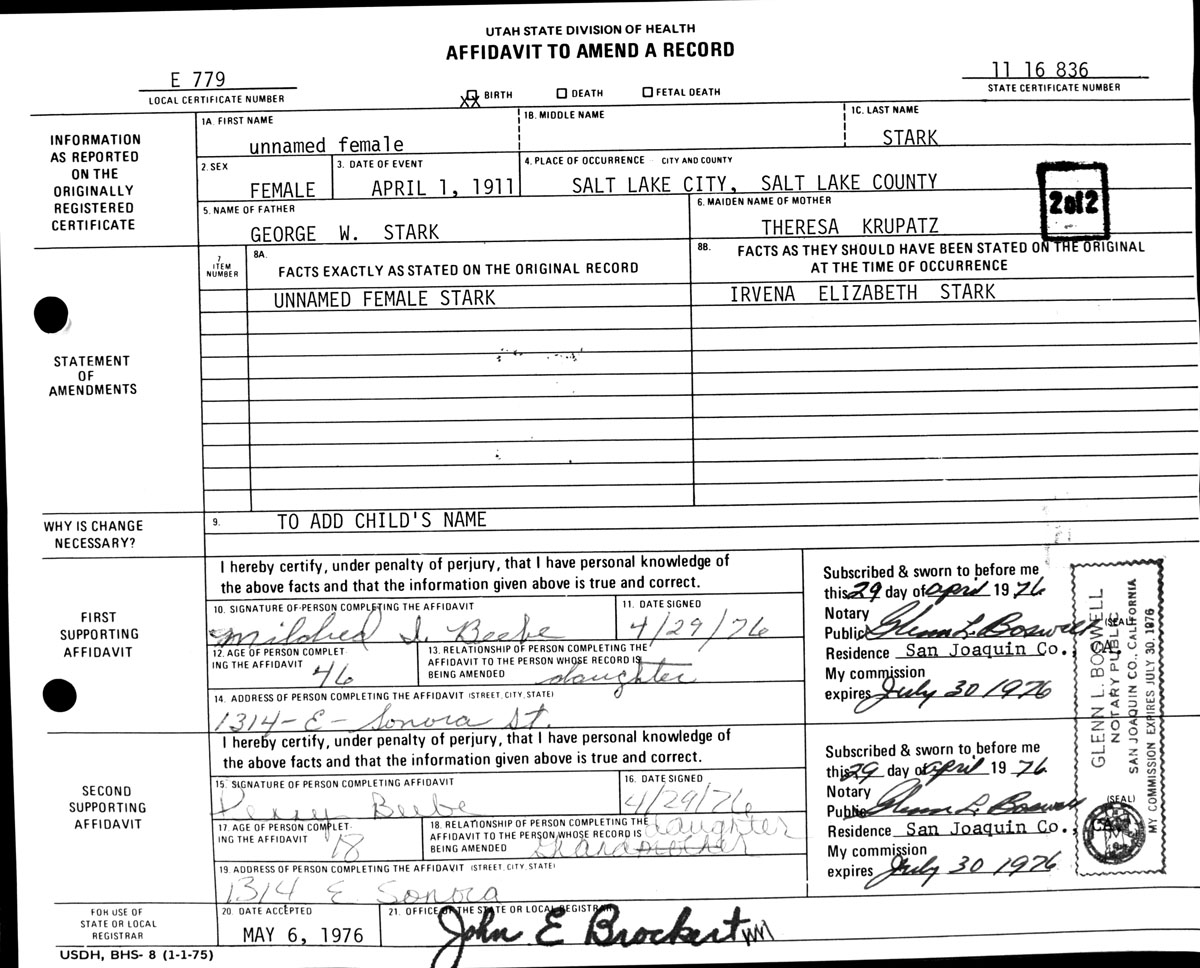 UTAH STATE DIVISION OF HEALTH
AFFIDAVIT TO AMEND A RECORD
E 779
LOCAL CERTIFICATE NUMBER
XX BIRTH DEATH FETAL DEATH
11 16 836
STATE CERTIFICATE NUMBER
INFORMATION
AS REPORTED
ON THE
ORIGINALLY
REGISTERED
CERTIFICATE
1A. FIRST NAME
unnamed female
1B. MIDDLE NAME
1C. LAST NAME
STARK
2. SEX
FEMALE
3. DATE OF EVENT
APRIL 1, 1911
4. PLACE OF OCCURRENCE - CITY AND COUNTY
SALT LAKE CITY, SALT LAKE COUNTY
2 of 2
5. NAME OF FATHER
GEORGE W. STARK
6. MAIDEN NAME OF MOTHER
THERESA KRUPATZ
STATEMENT
OF
AMENDMENTS
7
ITEM
NUMBER
8A.
FACTS EXACTLY AS STATED ON THE ORIGINAL RECORD
8B.
FACTS AS THEY SHOULD HAVE BEEN STATED ON THE ORIGINAL
AT THE TIME OF OCCURRENCE
UNNAMED FEMALE STARK
IRVENA ELIZABETH STARK
WHY IS CHANGE
NECESSARY?
9.
TO ADD CHILD'S NAME
FIRST
SUPPORTING
AFFIDAVIT
I hereby certify, under penalty of perjury, that I have personal knowledge of
the above facts and that the information given above is true and correct.
10. SIGNATURE OF PERSON COMPLETING THE AFFIDAVIT
Mildred I. Beebe
11. DATE SIGNED
4/29/76
12. AGE OF PERSON COMPLET-
ING THE AFFIDAVIT
46
13. RELATIONSHIP OF PERSON COMPLETING THE
AFFIDAVIT TO THE PERSON WHOSE RECORD IS
BEING AMENDED
daughter
14. ADDRESS OF PERSON COMPLETING THE AFFIDAVIT (STREET, CITY, STATE)
1314-E-Sonora St.
Subscribed & sworn to before me
this 29 day of april 1976
Notary
Public Glenn L. Boswell
(SEAL)
Residence San Joaquin Co., CA
My commission
expires July 30 1976
SECOND
SUPPORTING
AFFIDAVIT
I hereby certify, under penalty of perjury, that I have personal knowledge of
the above facts and that the information given above is true and correct.
15. SIGNATURE OF PERSON COMPLETING AFFIDAVIT
Beebe
16. DATE SIGNED
4/29/76
17. AGE OF PERSON COMPLET-
ING THE AFFIDAVIT
18
18. RELATIONSHIP OF PERSON COMPLETING THE
AFFIDAVIT TO THE PERSON WHOSE RECORD IS
BEING AMENDED
daughter
19. ADDRESS OF PERSON COMPLETING THE AFFIDAVIT (STREET, CITY, STATE)
1314 E Sonora
Subscribed & sworn to before me
this 29 day of april 1976
Notary
Public Glenn L. Boswell
(SEAL)
Residence San Joaquin Co., CA
My commission
expires July 30 1976
GLENN L. BOSWELL
NOTARY PUBLIC
SAN JOAQUIN CO., CALIFORNIA
MY COMMISSION EXPIRES JULY 30, 1976
FOR USE OF
STATE OR LOCAL
REGISTRAR
20. DATE ACCEPTED
MAY 6, 1976
21. OFFICE OF THE STATE OR LOCAL REGISTRAR
John E Brockert
USDH, BHS- 8 (1-1-75)